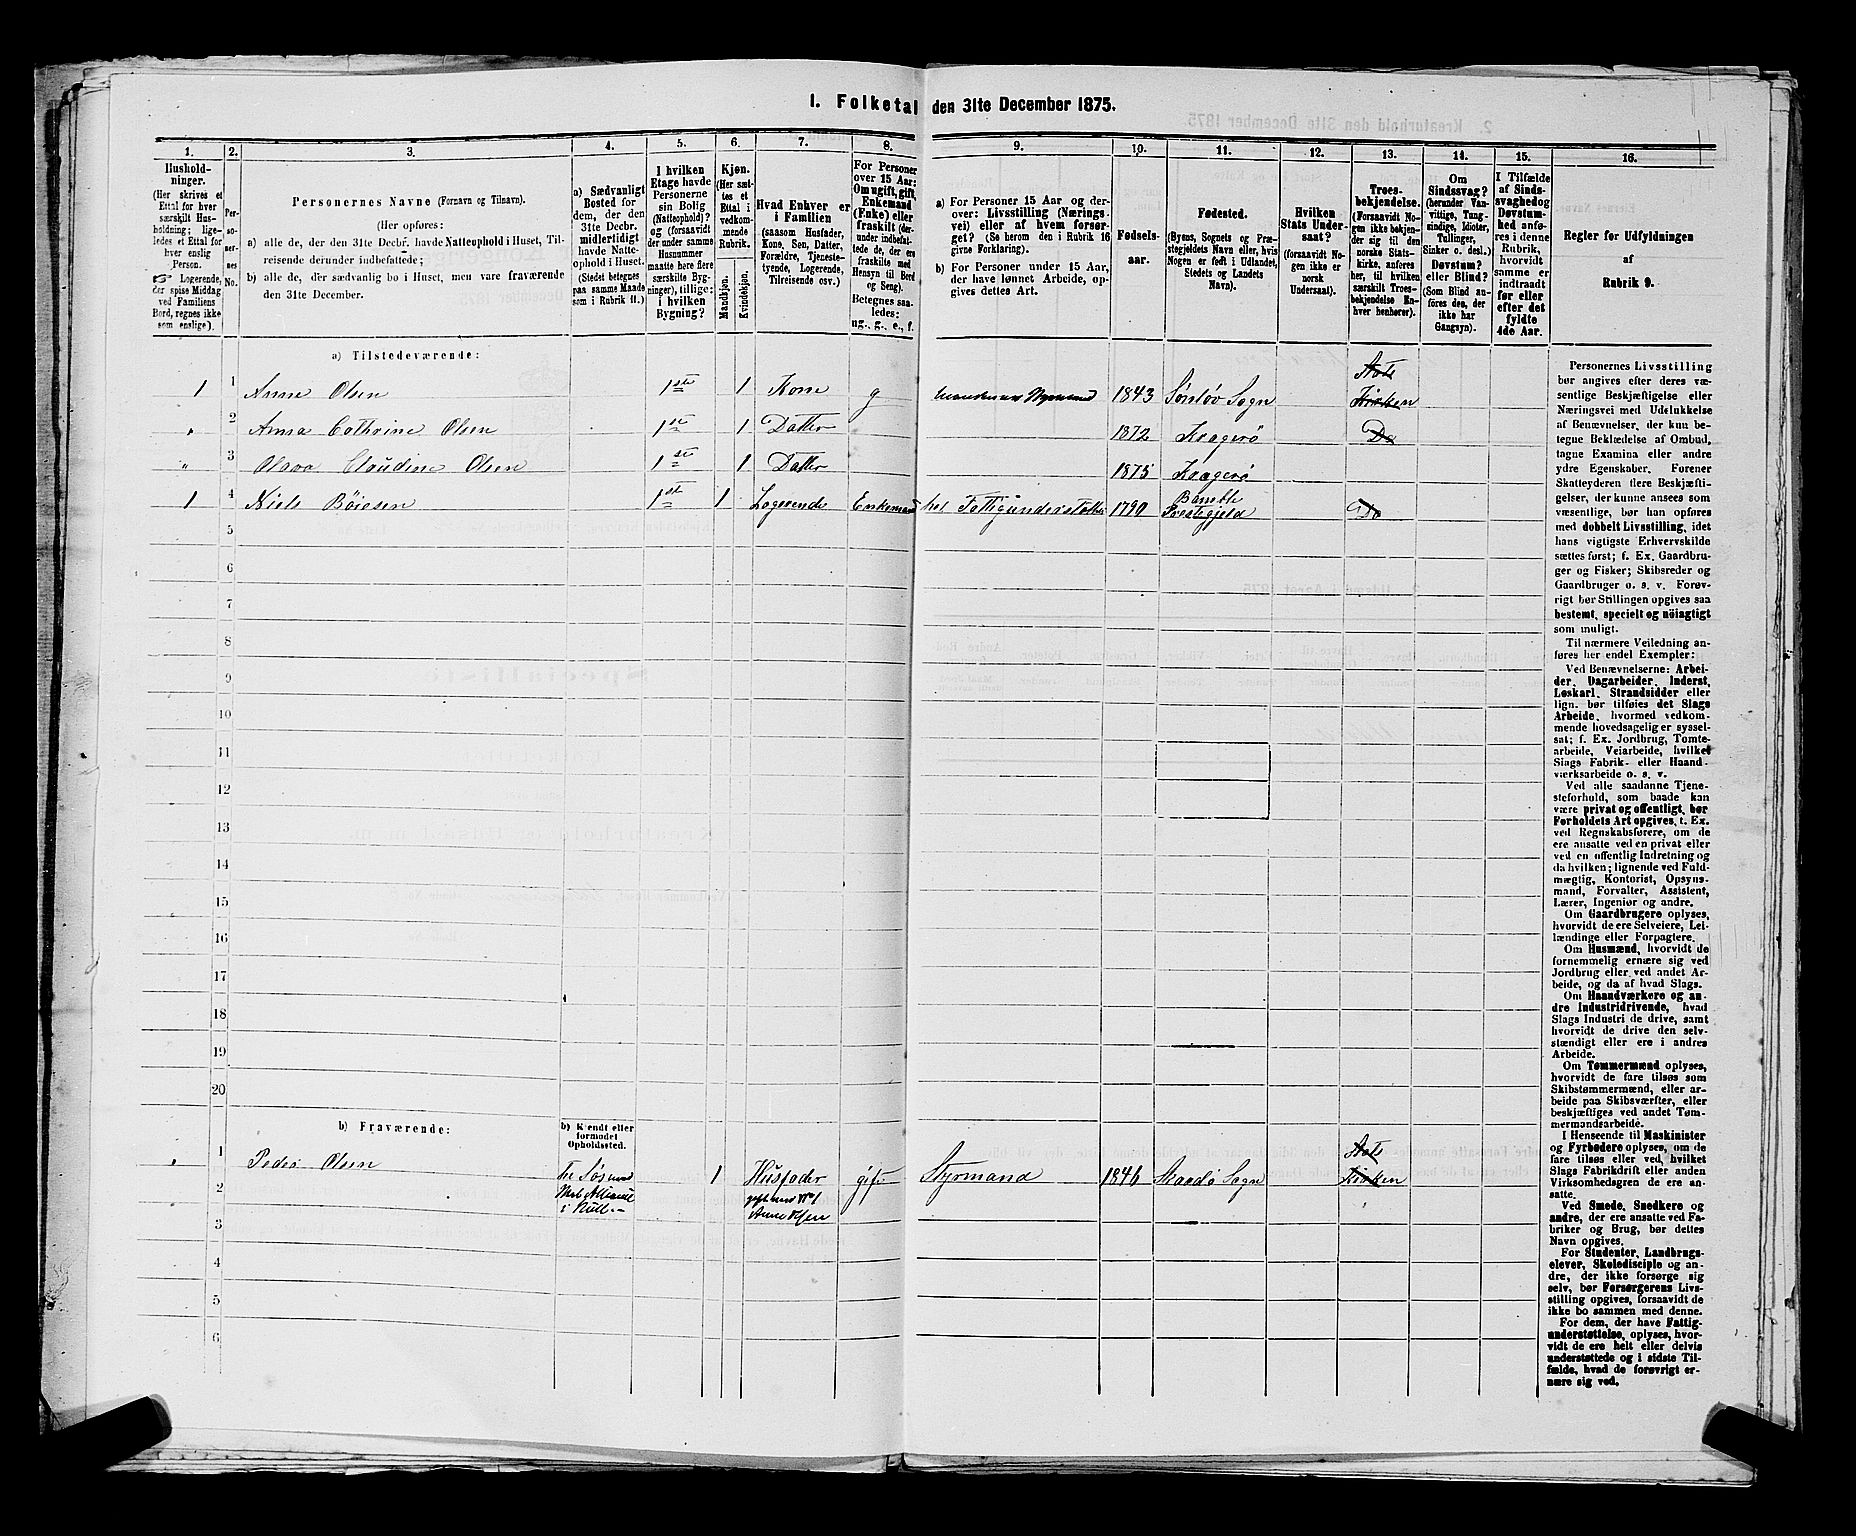 1. Folketal den 31te December 1875.
1.
2.
3.
4.
5.
6.
7.
8.
9.
10.
11.
12.
13.
14.
15.
16.
Hushold-
ninger.
(Her skrives et
Ettal for hver
særskilt Hus-
holdning; lige-
ledes et Ettal for
hver enslig
Person.
Logerende,
der spise Middag
ved Familiens
Bord, regnes ikke
som enslige).
Per-
so-
ner-
nes
No.
Personernes Navne (Fornavn og Tilnavn).
(Her opføres:
a) alle de, der den 31te Decbr. havde Natteophold i Huset, Til-
reisende derunder indbefattede;
b) alle de, der sædvanlig bo i Huset, men vare fraværende
den 31te December.
a) Sædvanligt
Bosted for
dem, der den
31te Decbr.
midlertidigt
havde Natte-
ophold i Huset.
(Stedet betegnes
paa samme Maade
som i Rubrik 11.)
I hvilken
Etage havde
Personerne
sin Bolig
(Natteophold)?
og (forsaavidt
der under samme
Husnummer
maatte høre flere
særskilte Byg-
ninger), tillige:
i hvilken
Bygning?
Kjøn.
(Her sæt-
tes et
Ettal i
vedkom-
mende
Rubrik.
Mandkjøn.
Kvindekjøn.
Hvad Enhver er
i Familien
(saasom Husfader,
Kone, Søn, Datter,
Forældre, Tjeneste-
tyende, Logerende,
Tilreisende osv.)
For Personer
over 15 Aar:
Om ugift, gift,
Enkemand
(Enke) eller
fraskilt (der-
under indbefat-
tede de, der ere
fraskilte med
Hensyn til Bord
og Seng).
Betegnes saa-
ledes:
ug., g., e., f.
a) For Personer 15 Aar og der-
over: Livsstilling (Nærings-
vei) eller af hvem forsør-
get? (Se herom den i Rubrik 16
givne Forklaring).
b) For Personer under 15 Aar,
der have lønnet Arbeide, op-
gives dettes Art.
Fødsels-
aar.
Fødested.
(Byens, Sognets og Præ-
stegjeldets Navn eller, hvis
Nogen er født i Udlandet,
Stedets og Landets
Navn).
Hvilken
Stats Under-
saat?
(forsaavidt No-
gen ikke er
norsk
Undersaat).
Troes-
bekjendelse.
(Forsaavidt No-
gen ikke bekjen-
der sig til den
norske Stats-
kirke, anføres
her, til hvilken
særskilt Troes-
bekjendelse En-
hver henhører).
Om
Sindssvag?
(herunder Van-
vittige, Tung-
sindige, Idioter,
Tullinger,
Sinker o. desl.)
Døvstum?
eller Blind?
(Som Blind an-
føres den, der
ikke har
Gangsyn).
I Tilfælde
af Sinds-
svaghed og
Døvstum-
hed anfø-
res i denne
Rubrik,
hvorvidt
samme er
indtraadt
før eller
efter det
fyldte
4de Aar.
Regler for Udfyldningen
af
Rubrik 9.
a) Tilstedeværende:
1 1 Anne Olsen 1ste 1 Kone g 1843 Söndöv Sogn Stats Kirken
" 2 Anna Cathrine Olsen 1ste 1 Datter 1872 Kragerö Do
" 3 Olava Claudine Olsen 1ste 1 Datter 1875 Kragerö
1 4 Niels Böresen 1ste 1 Logerende Enkemand har Fattigunderstøtt 1790 Bamble Prestegjeld Do
5
6
7
8
9
10
11
12
13
14
15
16
17
18
19
20
b) Fraværende:
b) Kjendt eller
formodet
Opholdssted.
1 Peder Olsen 1 Husfader gift Styrmand 1846 Skaadö Sogn Stats Kirken
gift med No 1
Anne Olsen
2
3
4
5
6
Personernes Livsstilling
bør angives efter deres væ-
sentlige Beskjæftigelse eller
Næringsvei med Udelukkelse
af Benævnelser, der kun be-
tegne Beklædelse af Ombud,
tagne Examina eller andre
ydre Egenskaber. Forener
Skatteyderen flere Beskjæfti-
gelser, der kunne ansees som
væsentlige, bør han opføres
med dobbelt Livsstilling, idet
hans vigtigste Erhvervskilde
sættes først; f. Ex. Gaardbru-
ger og Fisker; Skibsreder og
Gaardbruger o. s. v. Forøv-
rigt bør Stillingen opgives saa
bestemt, specielt og nöiagtigt
som muligt.
Til nærmere Veiledning an-
føres her endel Exempler:
Ved Benævnelserne: Arbei-
der, Dagarbeider, Inderst,
Løskarl, Strandsidder eller
lign. bør tilføies det Slags
Arbeide, hvormed vedkom-
mende hovedsagelig er syssel-
sat; f. Ex. Jordbrug, Tomte-
arbeide, Veiarbeide, hvilket
Slags Fabrik- eller Haand-
værksarbeide o. s. v.
Ved alle saadanne Tjene-
steforhold, som baade kan
være privat og offentligt, bør
Forholdets Art opgives, t. Ex.
ved Regnskabsførere, om de
ere ansatte ved en privat eller
ved en offentlig Indretning og
da hvilken; lignende ved Fuld-
mægtig, Kontorist, Opsyns-
mand, Forvalter, Assistent,
Lærer, Ingeniør og andre.
Om Gaardbrugere oplyses,
hvorvidt de ere Selveiere, Lei-
lændinge eller Forpagtere.
Om Husmænd, hvorvidt de
fornemmelig ernære sig ved
Jordbrug eller ved andet Ar-
beide, og da af hvad Slags.
Om Haandværkere og an-
dre Industridrivende, hvad
Slags Industri de drive, samt
hvorvidt de drive den selv-
stændigt eller ere i andres
Arbeide.
Om Tømmermænd oplyses,
hvorvidt de fare tilsøs som
Skibstømmermænd, eller ar-
beide paa Skibsværfter, eller
beskjæftiges ved andet Tøm-
mermandsarbeide.
I Henseende til Maskinister
og Fyrbødere oplyses, om de
fare tilsøs eller ved, hvilket
Slags Fabrikdrift eller anden
Virksomhedsgren de ere an-
satte.
Ved Smede, Snedkere og
andre, der ere ansatte ved Fa-
briker og Brug, bør dettes
Navn opgives.
For Studenter, Landbrugs-
elever, Skoledisciple og an-
dre, der ikke forsørge sig
selv, bør Forsørgerens Livs-
stilling opgives, forsaavidt de
ikke bo sammen med denne.
For dem, der have Fattig-
understøttelse, oplyses, hvor-
vidt de ere helt eller delvis
understøttede og i sidste Til-
fælde, hvad de forøvrigt er-
nære sig ved.